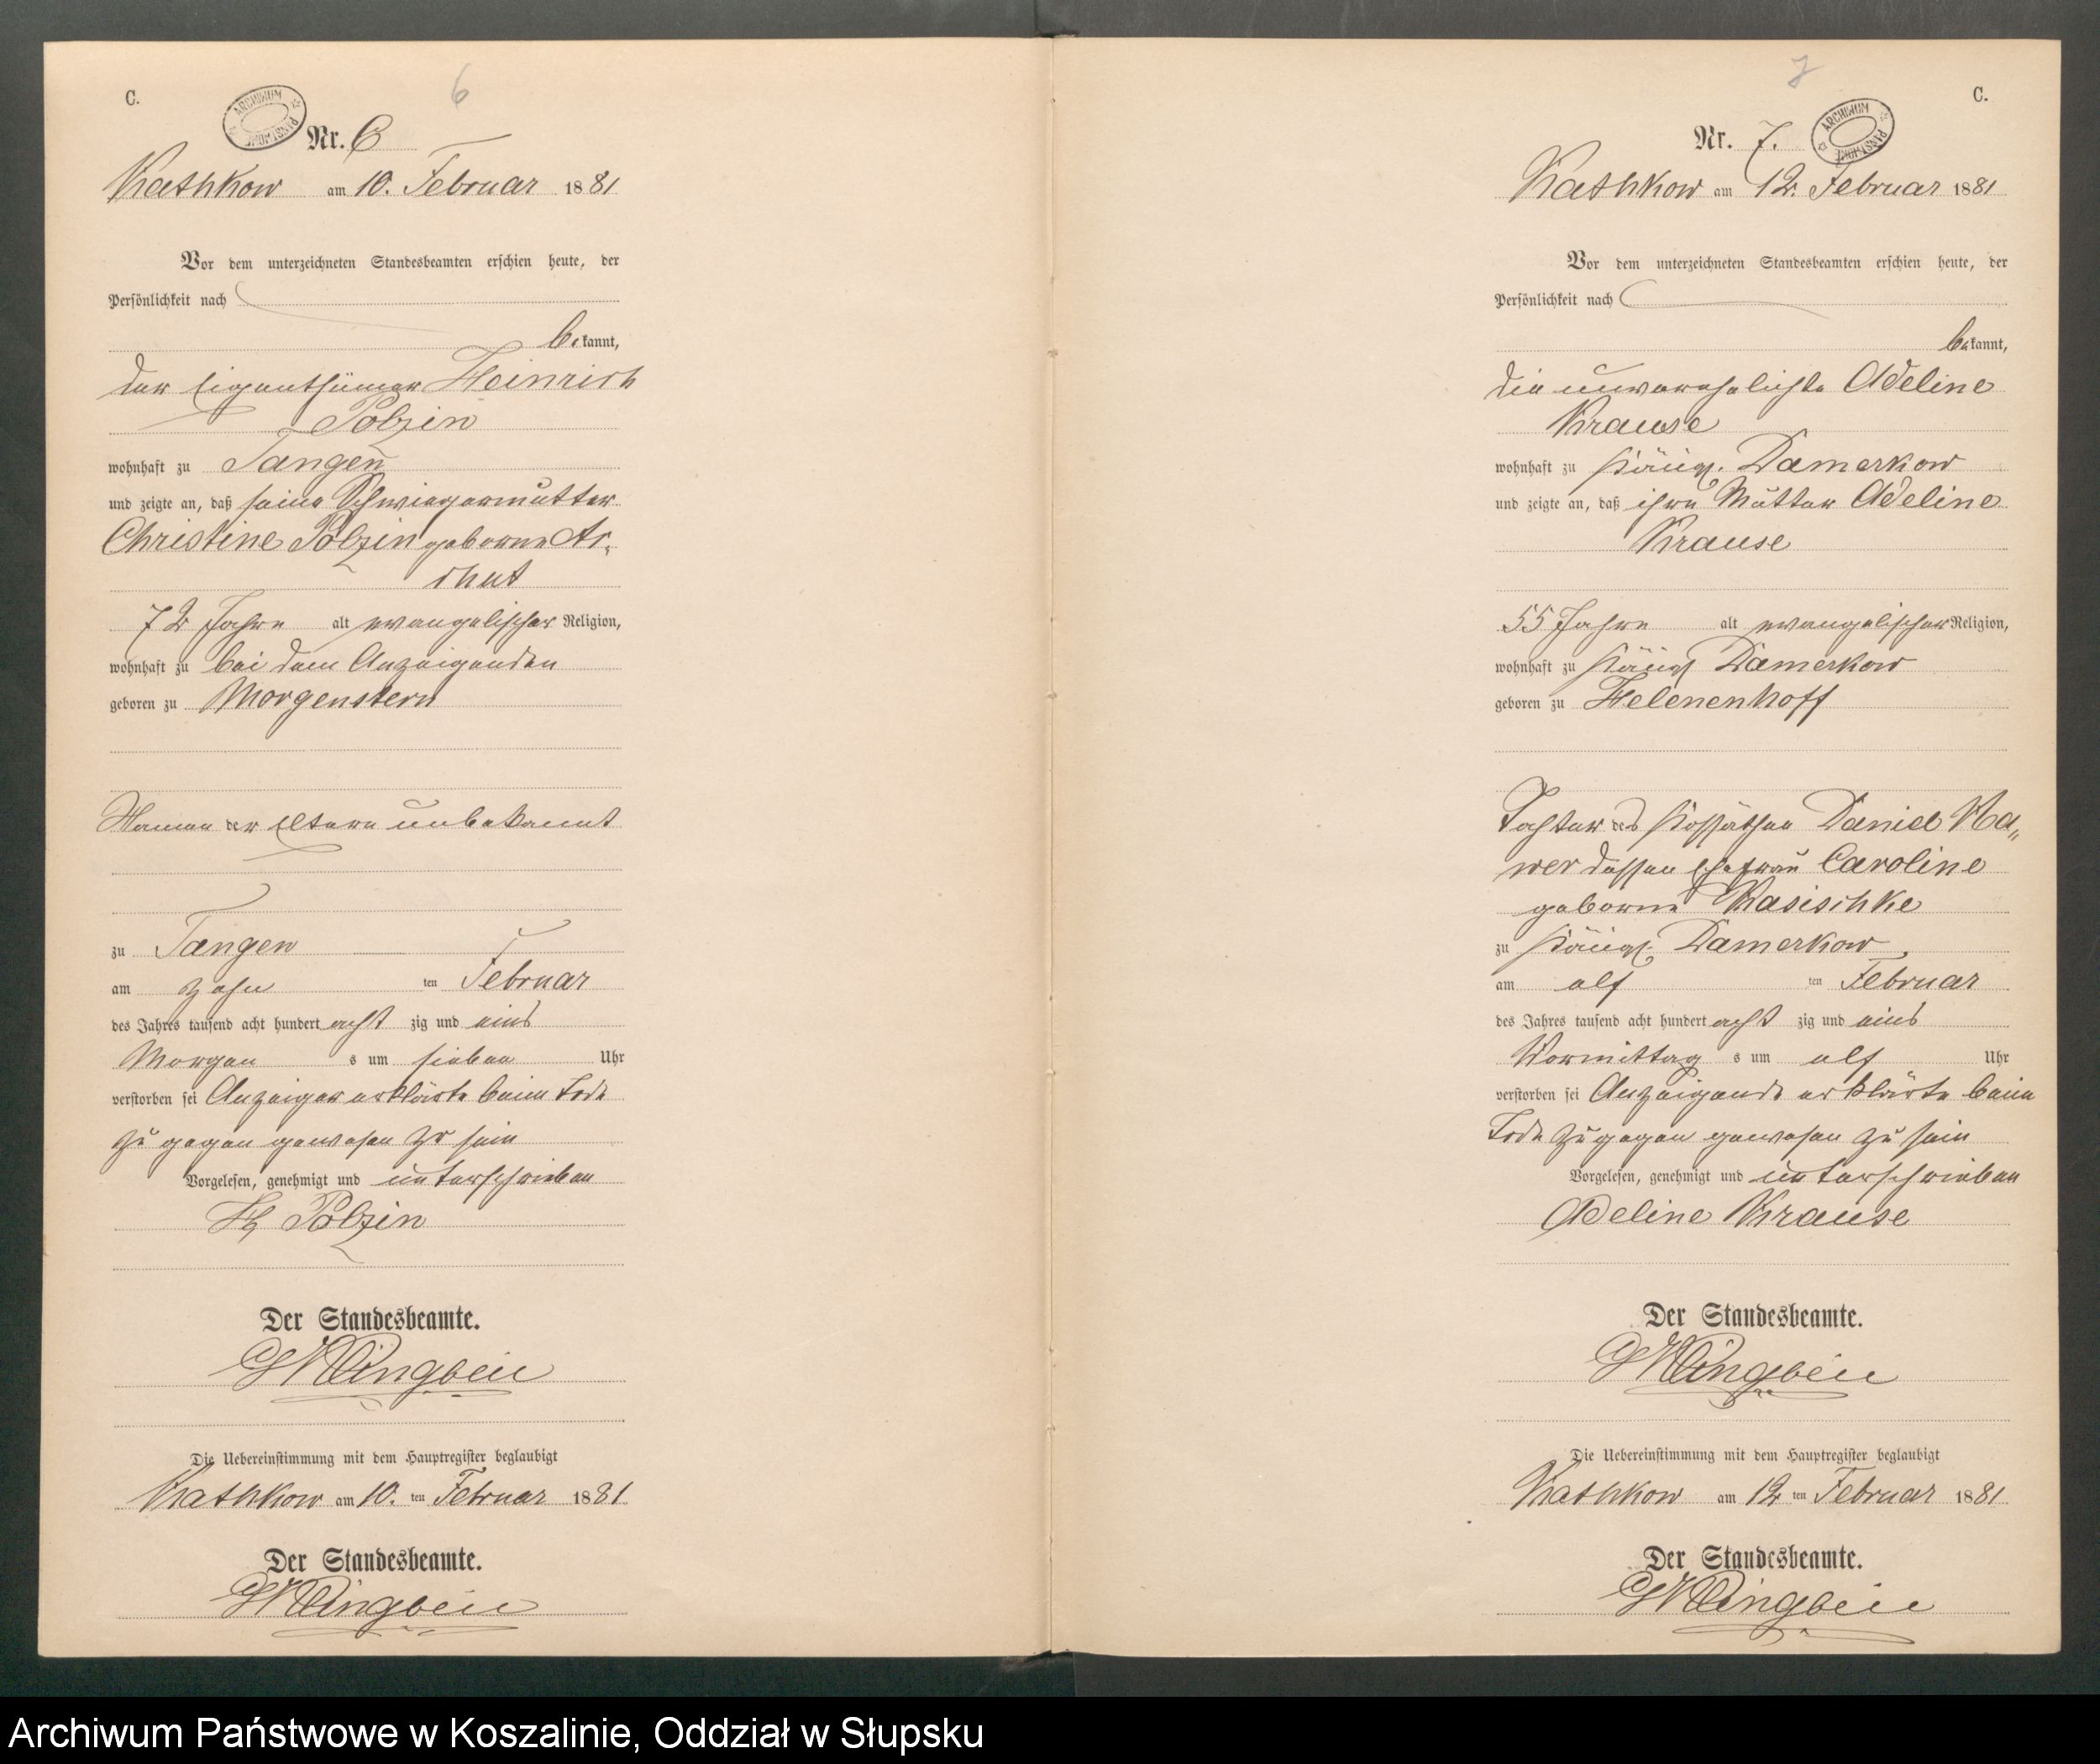 6
C.
ARCHIWUM PAŃSTWOWE
Nr. 6
Kathkow am 10. Februar 1881
Vor dem unterzeichneten Standesbeamten erschien heute, der
Persönlichkeit nach
bekannt,
der Eigenthümer Heinrich
Polzin
wohnhaft zu Tangen
und zeigte an, daß seine Schwiegermutter
Christine Polzin geborne
72 Jahre alt evangelischer Religion,
wohnhaft zu bei dem Anzeigenden
geboren zu Morgenstern
Namen der Eltern unbekannt
zu Tangen
am zehn ten Februar
des Jahres tausend acht hundert acht zig und eins
Morgen s um sieben Uhr
verstorben sei Anzeiger erklärte beim Tode
zu gegen gewesen zu sein
Vorgelesen, genehmigt und unterschrieben
H Polzin
Der Standesbeamte.
Klingbeil
Die Uebereinstimmung mit dem Hauptregister beglaubigt
Kathkow am 10. ten Februar 1881
Der Standesbeamte.
Klingbeil
7
C.
Nr. 7.
ARCHIWUM PAŃSTWOWE
Kathkow am 12. Februar 1881
Vor dem unterzeichneten Standesbeamten erschien heute, der
Persönlichkeit nach
bekannt,
die unverehelichte Adeline
Krause
wohnhaft zu Königl. Damerkow
und zeigte an, daß ihre Mutter Adeline
Krause
55 Jahre alt evangelischer Religion,
wohnhaft zu Königl Damerkow
geboren zu Helenenhoff
Tochter des Kossäthen Daniel Ka„
wer dessen Ehefrau Caroline
geborne Kasischke
zu Königl. Damerkow
am elf ten Februar
des Jahres tausend acht hundert acht zig und eins
Vormittag s um elf Uhr
verstorben sei Anzeigende erklärte beim
Tode zugegen gewesen zu sein
Vorgelesen, genehmigt und unterschrieben
Adeline Krause
Der Standesbeamte.
Klingbeil
Die Uebereinstimmung mit dem Hauptregister beglaubigt
Kathkow am 12 ten Februar 1881
Der Standesbeamte.
Klingbeil
Archiwum Państwowe w Koszalinie, Oddział w Słupsku